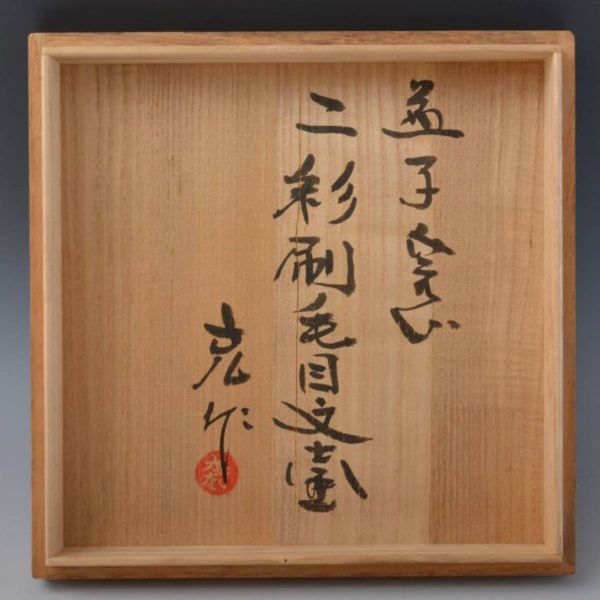 益子窯
二彩刷毛目文壷
作